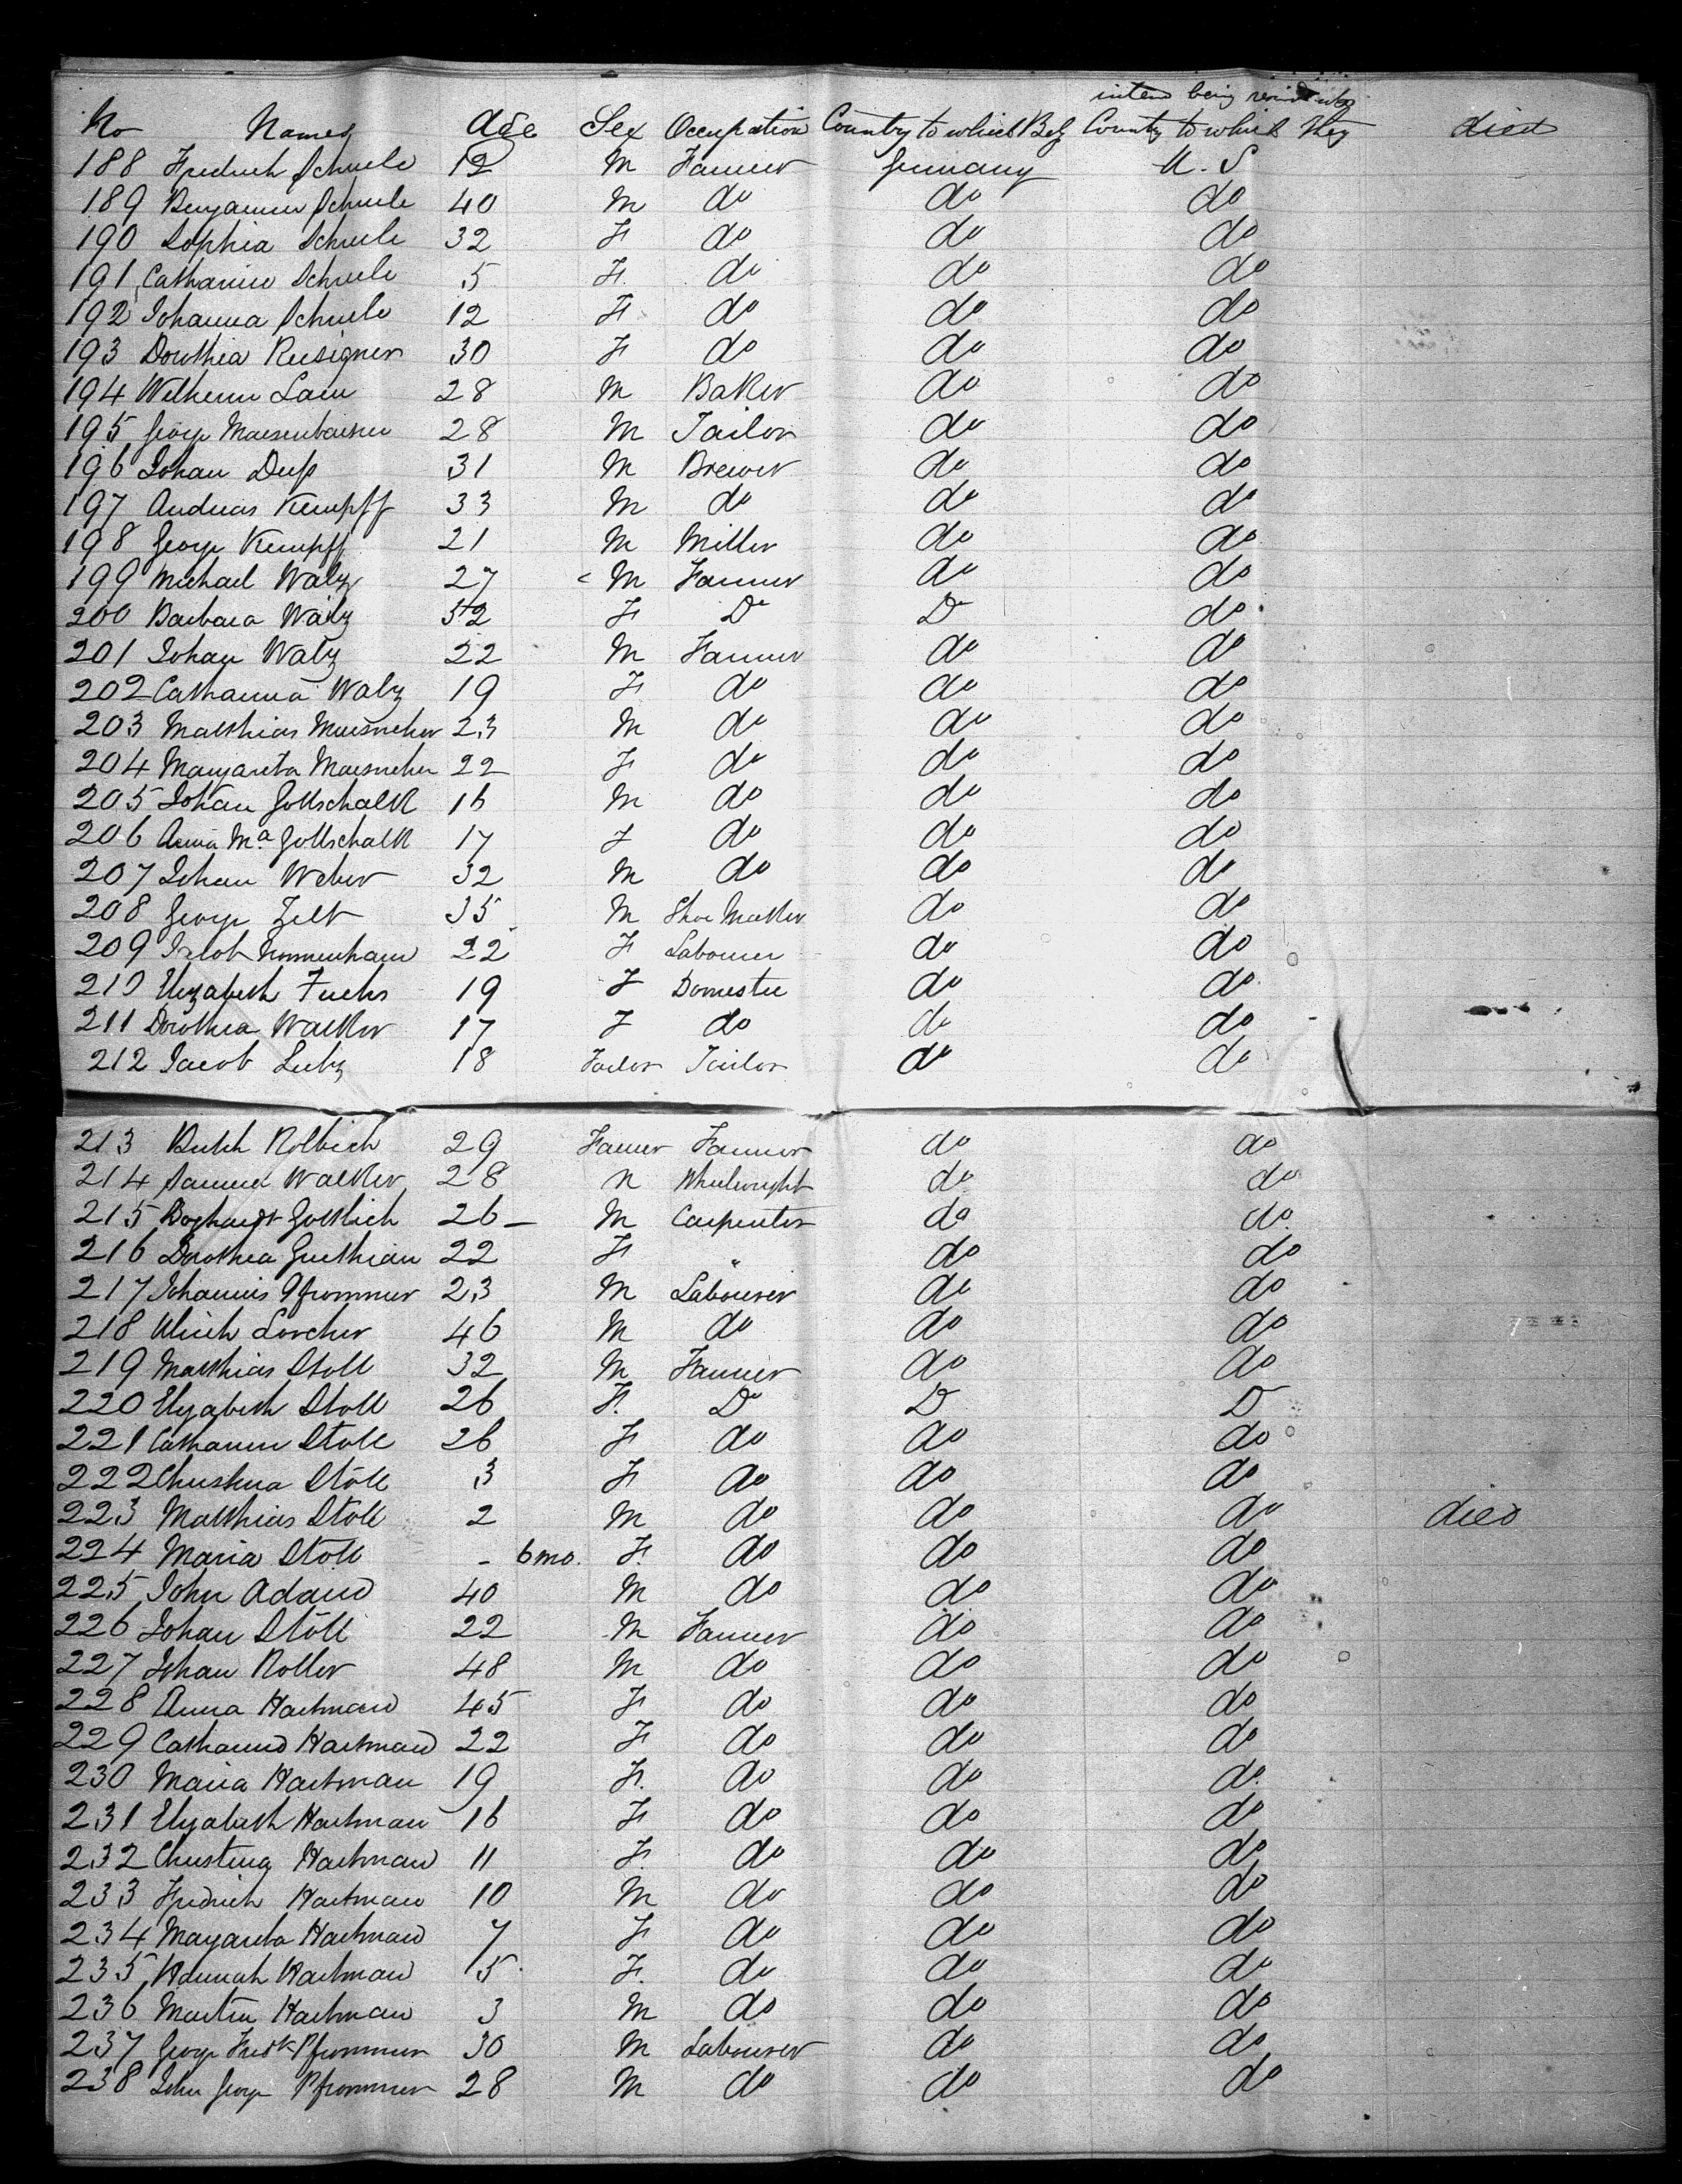 intend being
No Names Age Sex Occupation Country to which Belg Country to which they died
188 Fredrich Schuele 12 M Farmer Germany U. S
189 Benjamin Schuele 40 M do do do
190 Sophia Schuele 32 F do do do
191 Catharine Schuele 5 F. do do do
192 Johanna Schuele 12 F do do do
193 Dorothea Reisigner 30 F do do do
194 Welhemn 28 M Baker do do
195 George 28 M Tailor do do
196 Johan 31 M Brewer do do
197 Andreas Kempff 33 M do do do
198 George Kempff 21 M Miller do do
199 Michael Walz 27 M Farmer do do
200 Barbara Walz 52 F Do Do do
201 Johan Walz 22 M Farmer do do
202 Catharina Walz 19 F do do do
203 Matthias 23 M do do do
204 Margareta 22 F do do do
205 Johan Gottschalk 16 M do do do
206 Anna Ma. Gottschalk 17 F do do do
207 Johan Weber 32 M do do do
208 George Zelt 35 M Shoe Maker do do
209 Jacob 22 F Labourer do do
210 Elizabeth Fuchs 19 F Domestic do do
211 Dorothea Walker 17 F do do do
212 Jacob Lutz 18 Tailor Tailor do do
213 29 Farmer Farmer do do
214 Samuel Walker 28 M Wheelwright do do
215 Gottlieb 26 - M Carpenter do do
216 Dorothea 22 F " do do
217 Johannis Pfrommer 23 M Labourer do do
218 Ulrich Lorcher 46 M do do do
219 Matthias Stoll 32 M Farmer do do
220 Elizabeth Stoll 26 F. Do Do Do
221 Catharine Stoll 26 F do do do
222 Christina Stoll 3 F do do do
223 Matthias Stoll 2 M do do do died
224 Maria Stoll - 6 mo. F. do do do
225 John Adam 40 M do do do
226 Johan Stoll 22 M Farmer do do
227 Johan Roller 48 M do do do
228 Anna Hartman 45 F do do do
229 Catharine Hartman 22 F do do do
230 Maria Hartman 19 F. do do do
231 Elizabeth Hartman 16 F do do do
232 Christina Hartman 11 F. do do do
233 Fredrich Hartman 10 M do do do
234 Margareta Hartman 7 F do do do
235 Hannah Hartman 5 F. do do do
236 Martin Hartman 3 M do do do
237 George Fredk Pfrommer 30 M Labourer do do
238 John George Pfrommer 28 M do do do